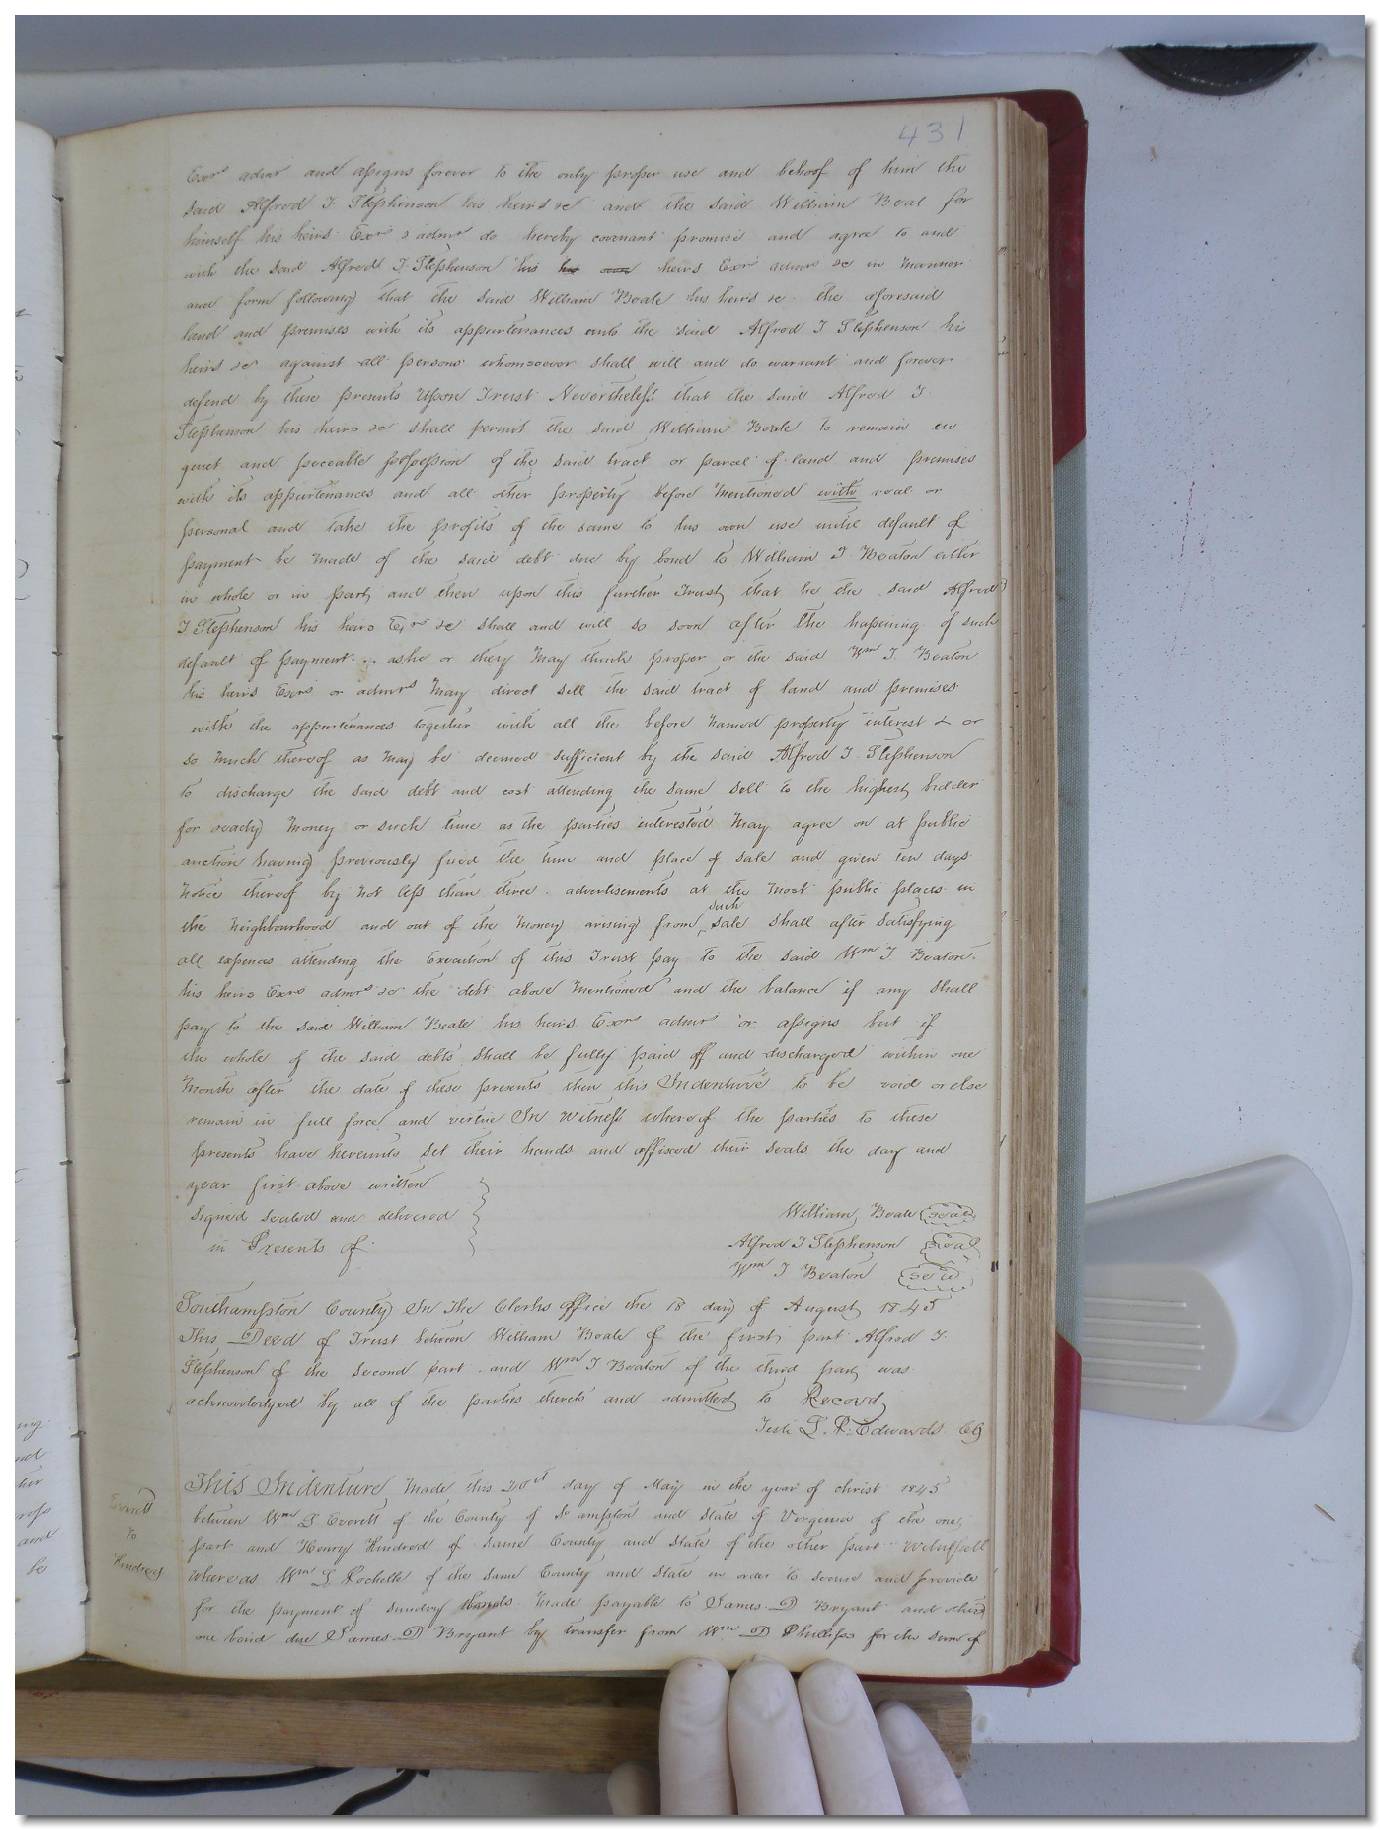 431
Exrs admr and assigns forever to the only proper use and behoof of him the
said Alfred I Stephenson his heirs &c and the said William Beal for
himself his heirs Exrs & admrs do hereby covenant promise and agree to and
with the said Alfred I Stephenson his heirs Exrs admrs &c in manner
and form following that the said William Beale his heirs &c the aforesaid
land and premises with its appurtenances unto the said Alfred I Stephenson his
heirs &c against all persons whomsoever shall will and do warrant and forever
defend by these presents Upon Trust Nevertheless that the said Alfred I
Stephenson his heirs &c shall permit the said William Beale to remain in
quiet and peceable possession of the said tract or parcel of land and premises
with its appurtenances and all other property before mentioned with real or
personal and take the profits of the same to his own use untill default of
payment be made of the said debt due by bond to William I Beaton either
in whole or in part and then upon this further Trust that he the said Alfred
I Stephenson his heirs Exrs &c shall and will so soon after the hapening of such
default of payment as he or they may think proper or the said Wm I. Beaton
his heirs Exrs or admrs may direct sell the said tract of land and premises
with the appurtenances together with all the before named property interest & or
so much thereof as may be deemed sufficient by the said Alfred I Stephenson
to discharge the said debt and cost attending the same sell to the highest bidder
for ready money or such time as the parties interested may agree on at public
auction having previously fixed the time and place of sale and given ten days
notice thereof by not less than three advertisements at the most public places in
the neighbourhood and out of the money arising from such sale shall after satisfying
all expences attending the Execution of this Trust pay to the said Wm I Beaton
his heirs Exrs admrs &c the debt above mentioned and the balance if any shall
pay to the said William Beale his heirs Exrs admrs or assigns but if
the whole of the said debts shall be fully paid off and discharged within one
month after the date of these presents then this Indenture to be void or else
remain in full force and virtue In Witness whereof the parties to these
presents have hereunto set their hands and affixed their seals the day and
year first above written
signed sealed and delivered
in Presents of
William Beale seal
Alfred I Stephenson seal
Wm I Beaton seal
Southampton County In The Clerks office the 18 day of August 1845
This Deed of Trust between William Beale of the first part Alfred I.
Stephenson of the second part and Wm I Beaton of the third part was
acknowledged by all of the parties thereto and admitted to Record
Teste L. R. Edwards CC
Everett
to
Kindred
This Indenture made this day of May in the year of christ 1845
between Wm Everett of the County of So ampton and state of Virginia of the one
part and Henry Kindred of same County and state of the other part Witnesseth
whereas Wm Rochelle of the same County and state in order to secure and provide
for the payment of sundry Bonds made payable to James D Bryant and others
one bond due James D Bryant by transfer from Wm D Phillips for the sum of